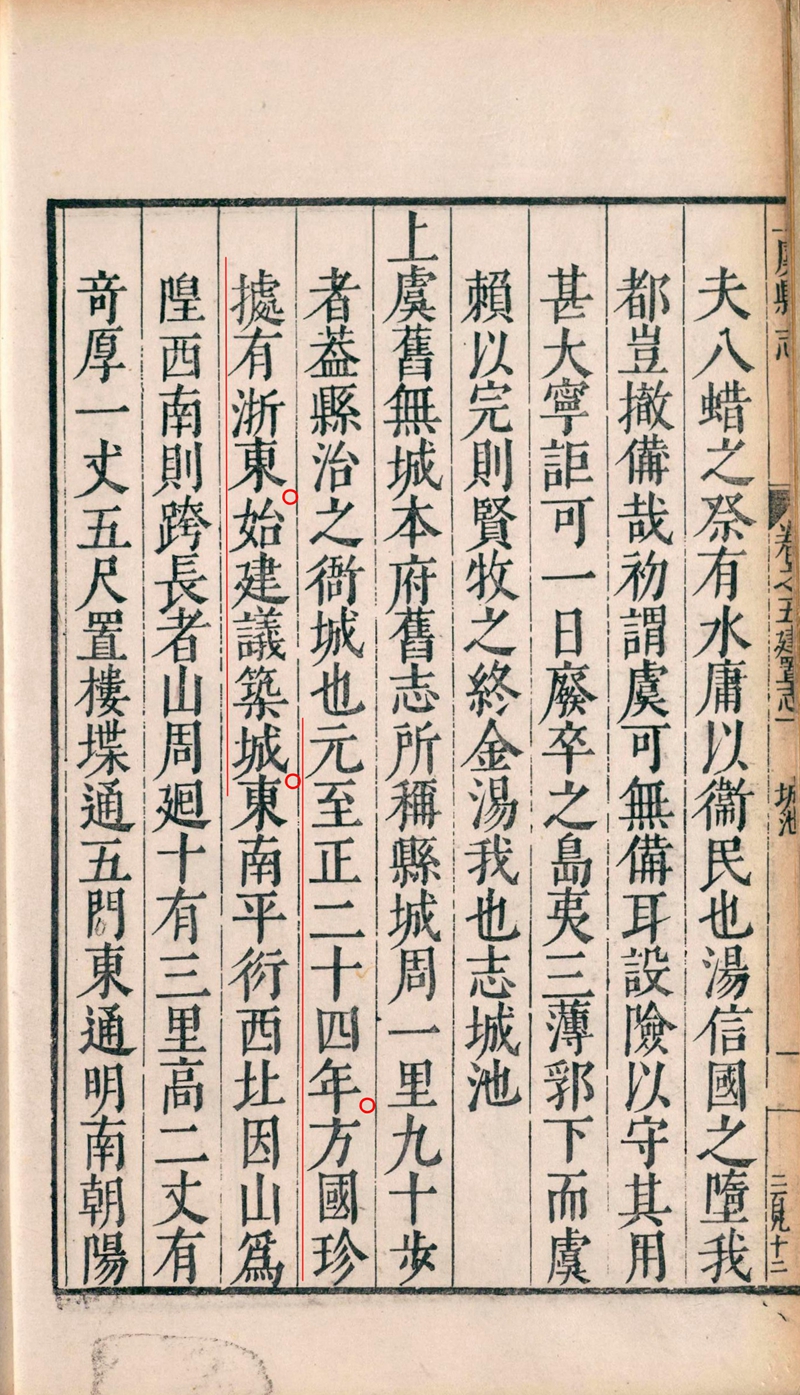 上虞縣志
卷之五建置志一
城池
一
二百九十二
夫八蜡之祭有水庸以衞民也湯信國之墮我
都豈撤備哉初謂虞可無備耳設險以守其用
甚大寧詎可一日廢卒之島夷三薄郛下而虞
賴以完則賢牧之終金湯我也志城池
上虞舊無城本府舊志所稱縣城周一里九十步
者葢縣治之衙城也元至正二十四年方國珍
據有浙東始建議築城東南平衍西北因山爲
隍西南則跨長者山周廻十有三里高二丈有
竒厚一丈五尺置樓堞通五門東通明南朝陽